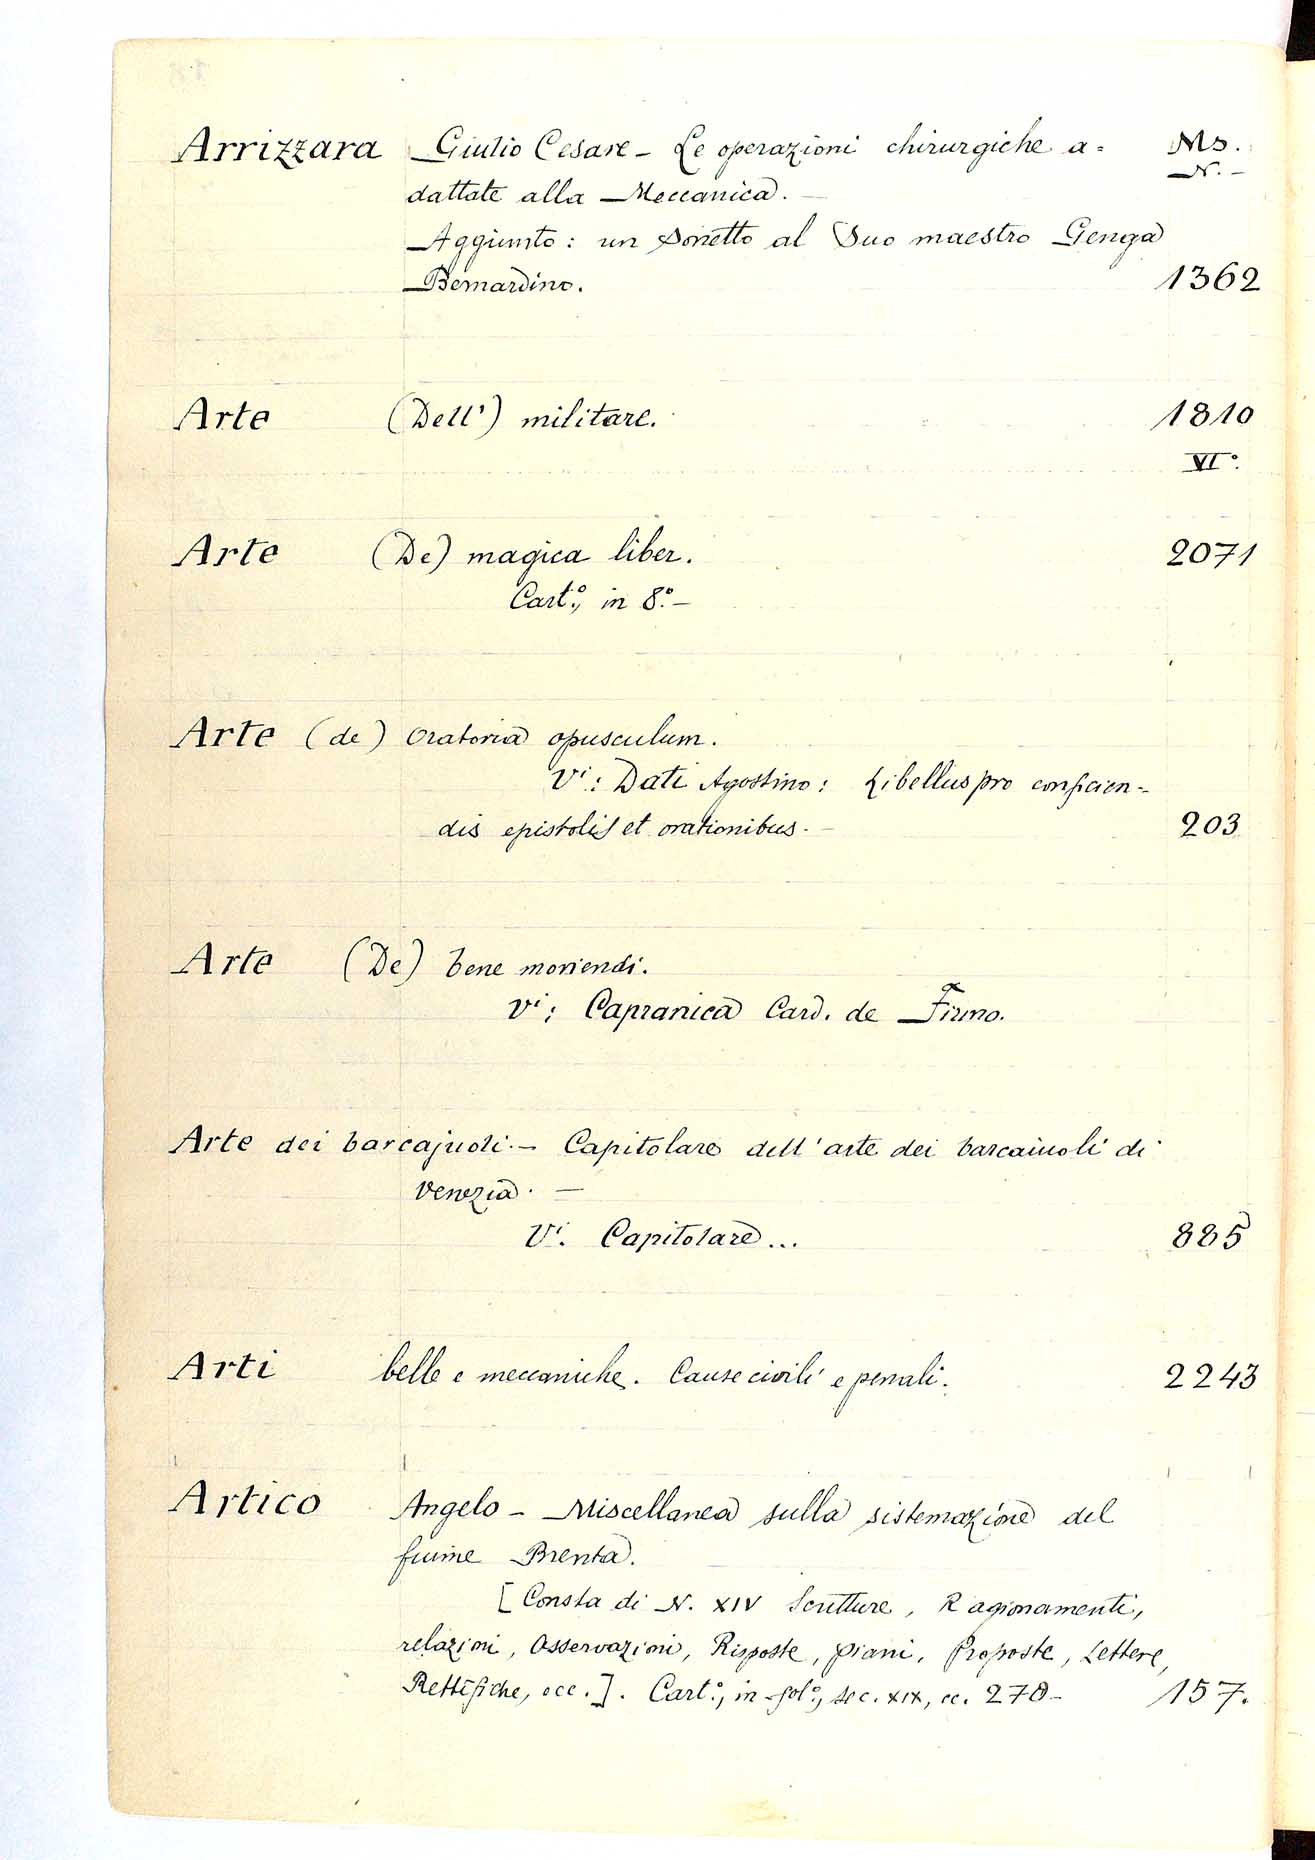 Arrizzara Giulio Cesare - Le operazioni chirurgiche a= Ms.
N. -
dattate alla Meccanica. -
Aggiunto: un Sonetto al Suo maestro Genga
Bernardino. 1362
Arte (Dell') militare. 1810
VI°.
Arte (De) magica liber. 2071
Cart.°, in 8.° -
Arte (de) Oratoria opusculum.
Vi: Dati Agostino: Libellus pro conficien=
dis epistolis et orationibus. - 203
Arte (De) bene moriendi.
Vi: Capranica Card. de Firmo.
Arte dei barcajuoli. - Capitolare dell'arte dei barcaiuoli di
Venezia. -
Vi. Capitolare... 885
Arti belle e meccaniche. Cause civili e penali. 2243
Artico Angelo - Miscellanea sulla sistemazione del
fiume Brenta.
[Consta di N. XIV Scritture, Ragionamenti,
relazioni, Osservazioni, Risposte, piani, Proposte, Lettere,
Rettifiche, ecc.]. Cart.°, in-fol.°, sec. XIX, cc. 278 - 157.